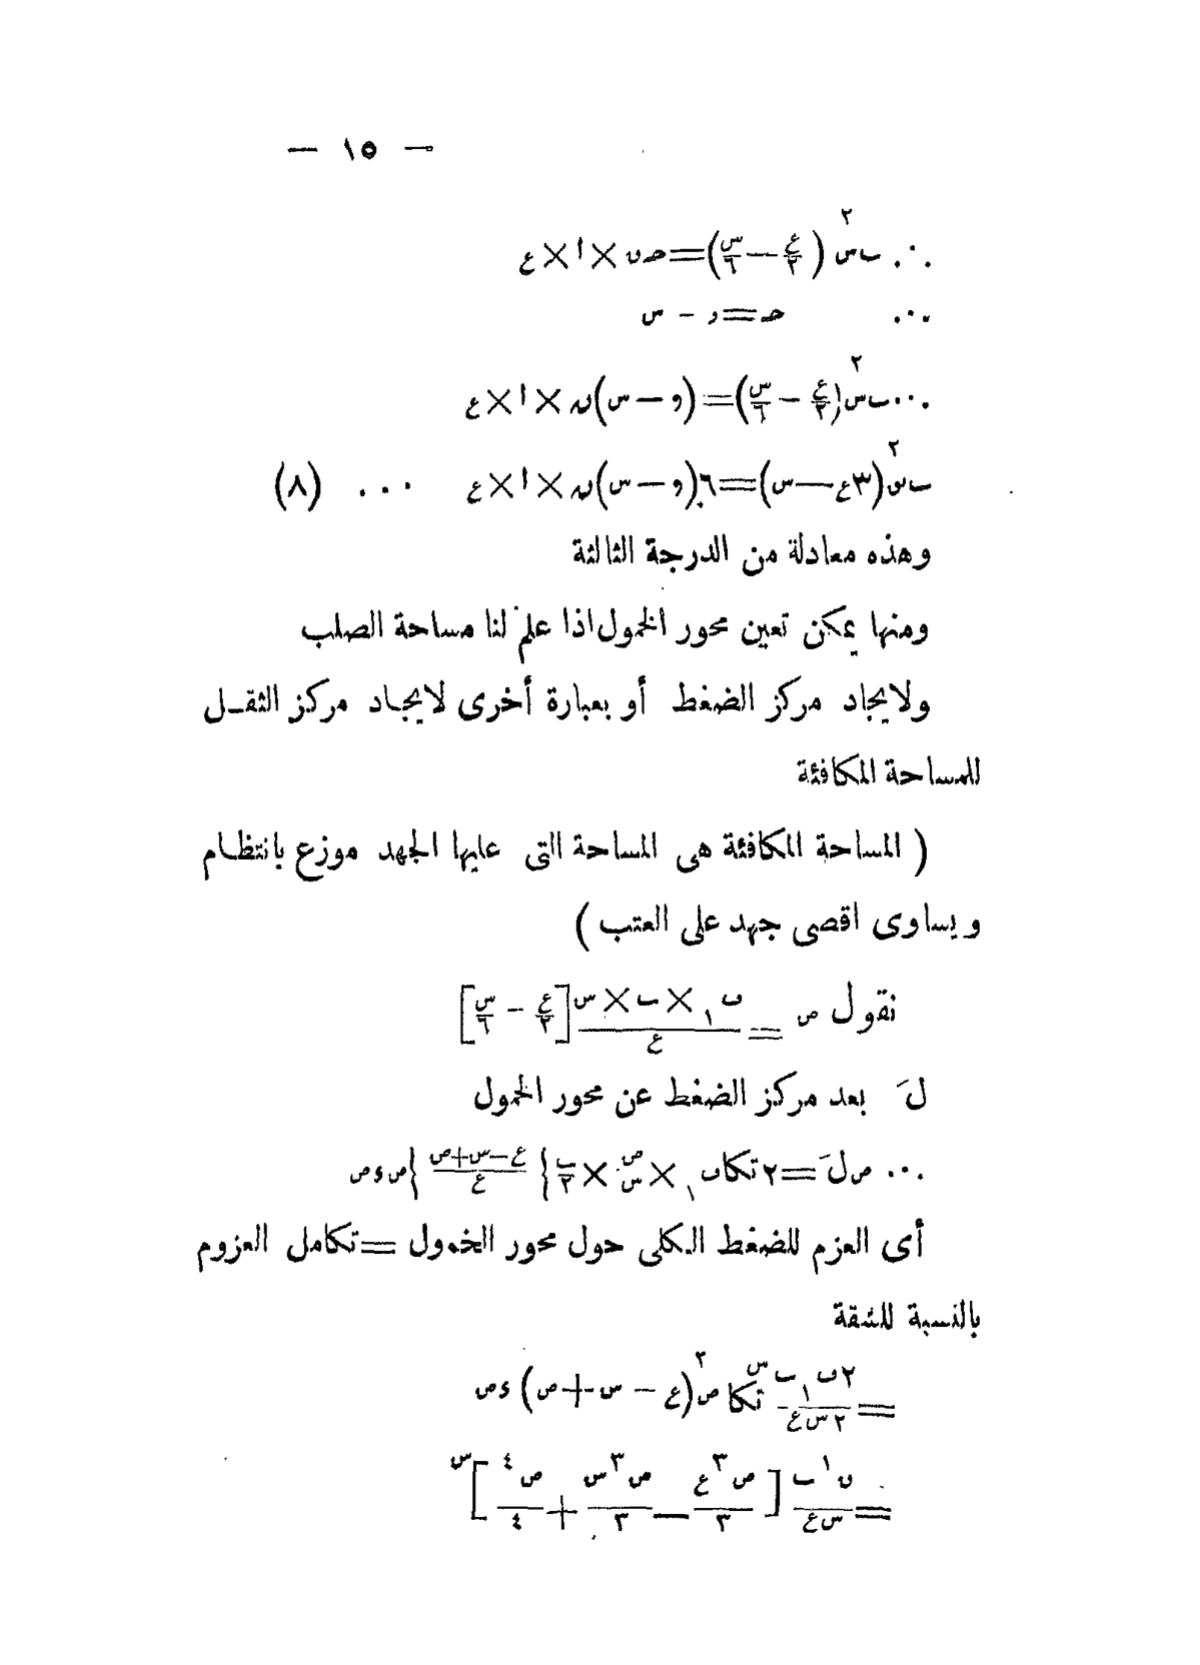 — ١٥ —
∴ ب س٢ (ع/٢ − س/٦) = حـ ن × ا × ع
∵ حـ = و - س
∴ ب س٢ (ع/٢ − س/٦) = (و − س) ن × ا × ع
ب س٢ (٣ع − س) = ٦(و − س) ن × ا × ع ... (٨)
وهذه معادلة من الدرجة الثالثة
ومنها يمكن تعين محور الخمول اذا علم لنا مساحة الصلب
ولايجاد مركز الضغط أو بعبارة أخرى لايجاد مركز الثقـل
للمساحة المكافئة
( المساحة المكافئة هى المساحة التى عليها الجهد موزع بانتظام
ويساوى اقصى جهد على العتب )
نقول ص = ف١ × ب × س/ع [ع/٢ − س/٦]
لَ بعد مركز الضغط عن محور الخمول
∴ ص لَ = ٢ تكا ف١ × ص/س × ب/٢ {ع−س+ص/ع} ص ء ص
أى العزم للضغط الكلى حول محور الخمول = تكامل العزوم
بالنسبة للشقة
= ٢ف١ ب/٢ س ع تكا س ص٢ (ع − س + ص) ء ص
= ف١ ب/س ع [ص٣ ع/٣ − ص٣ س/٣ + ص٤/٤] س